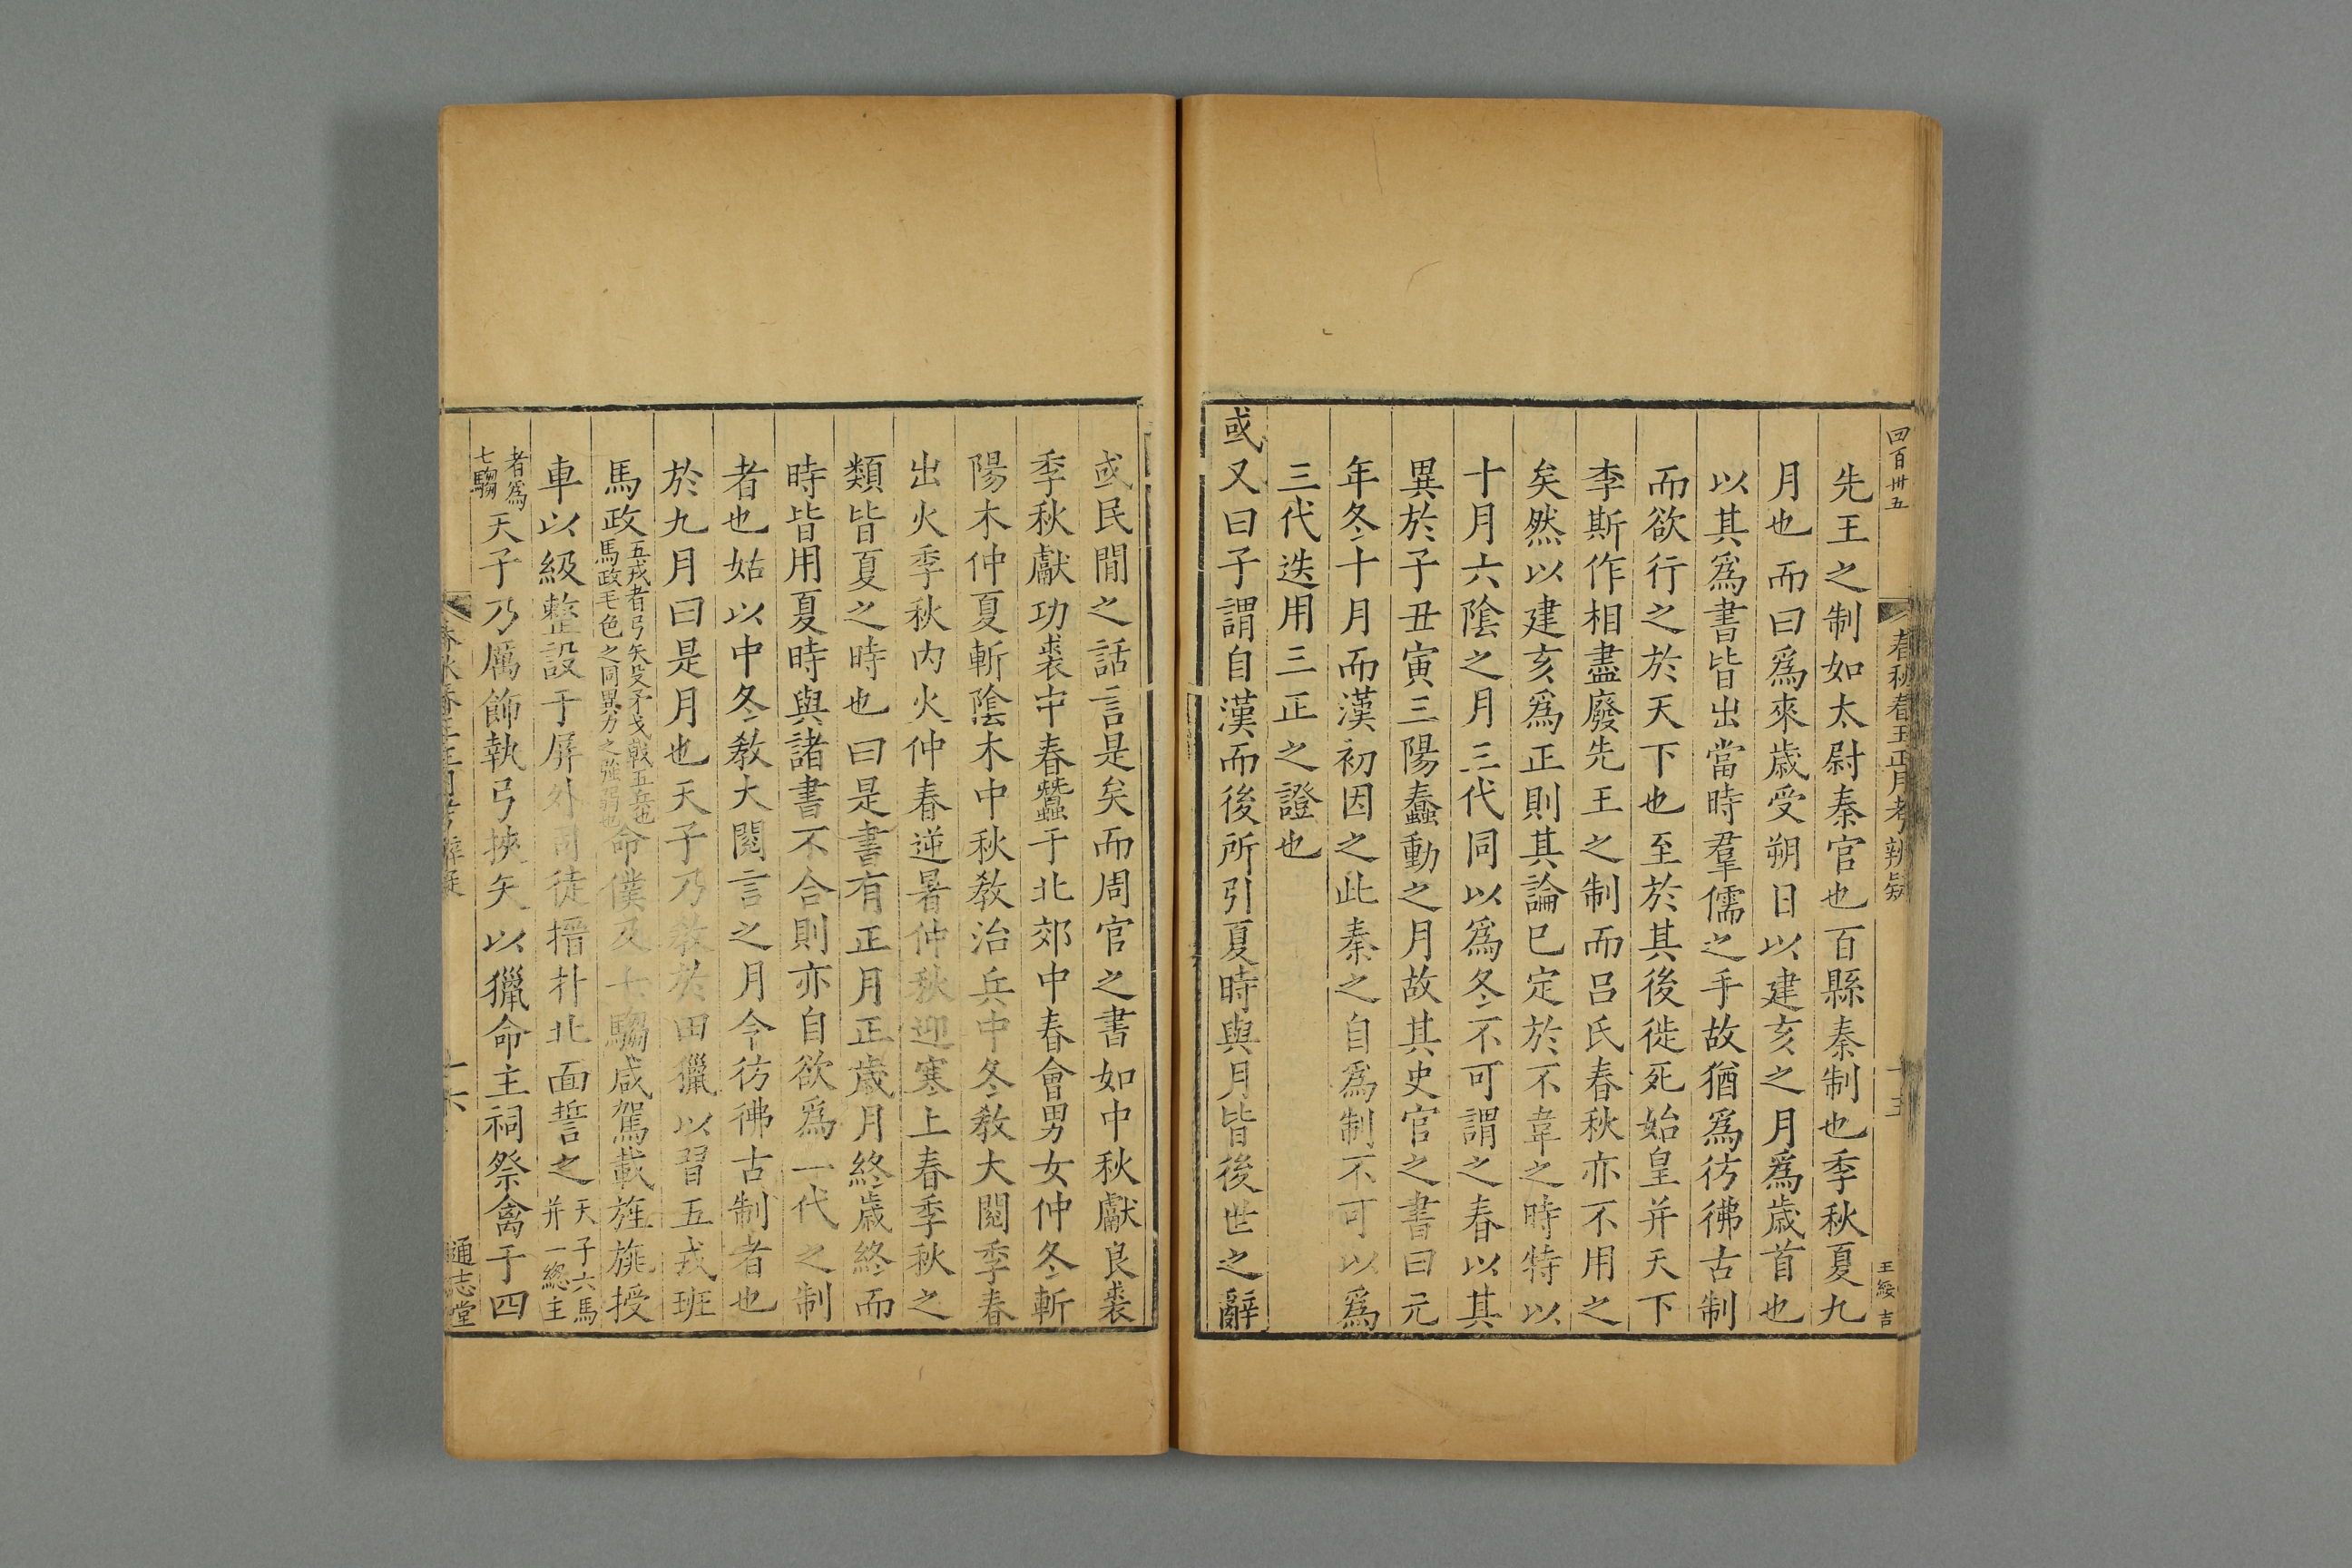 四百卅五
春秋春王正月考辨疑
十五
王綏 吉
先王之制如太尉秦官也百縣秦制也季秋夏九
月也而曰爲來歲受朔日以建亥之月爲歲首也
以其爲書皆出當時羣儒之手故猶爲彷彿古制
而欲行之於天下也至於其後徙死始皇并天下
李斯作相盡廢先王之制而呂氏春秋亦不用之
矣然以建亥爲正則其論已定於不韋之時特以
十月六陰之月三代同以爲冬不可謂之春以其
異於子丑寅三陽蠢動之月故其史官之書曰元
年冬十月而漢初因之此秦之自爲制不可以爲
三代迭用三正之證也
或又曰子謂自漢而後所引夏時與月皆後世之辭
或民間之話言是矣而周官之書如中秋獻良裘
季秋獻功裘中春蠶于北郊中春會男女仲冬斬
陽木仲夏斬陰木中秋敎治兵中冬敎大閱季春
出火季秋內火仲春逆暑仲秋迎寒上春季秋之
類皆夏之時也曰是書有正月正歲月終歲終而
時皆用夏時與諸書不合則亦自欲爲一代之制
者也姑以中冬敎大閱言之月令彷彿古制者也
於九月曰是月也天子乃敎於田獵以習五戎班
馬政五戎者弓矢殳矛戈戟五兵也馬政毛色之同異力之強弱也命僕及七騶咸駕載旌旐授
車以級整設于屏外司徒搢扑北面誓之天子六馬并一總主
者爲七騶天子乃厲飾執弓挾矢以獵命主祠祭禽于四
春秋春王正月考辨疑
十六
通志堂